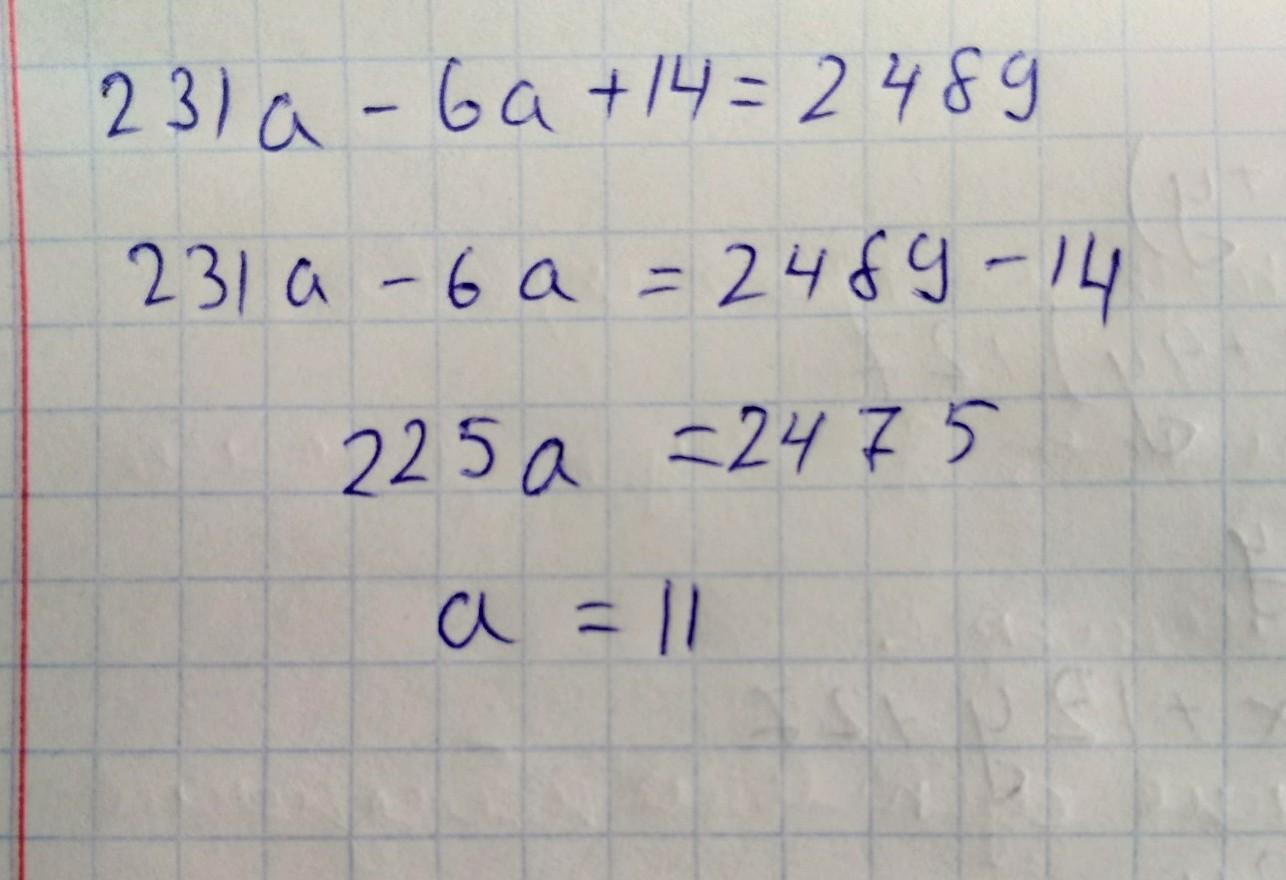 231a - 6a + 14 = 2489
231a - 6a = 2489 - 14
225a = 2475
a = 11